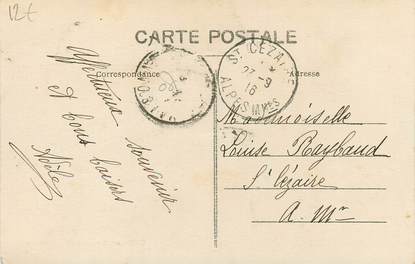 12€
CARTE POSTALE
Correspondance
Adresse
Affectueux souvenir
et bons baisers
ST CÉZAIRE
27-9
16
ALPES MMES
Mademoiselle
Louise Raybaud
St Cézaire
A. Mmes